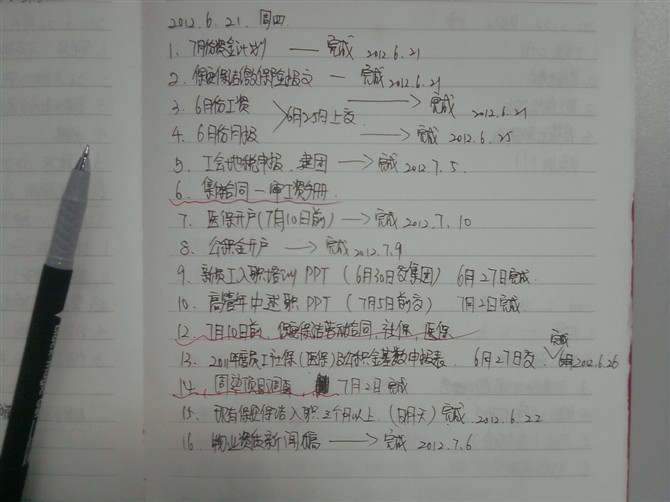 2012.6.21 周四
1. 7月份资金计划 —— 完成 2012.6.21
2. 保安保洁缴保险报文 — 完成 2012.6.21
3. 6月份工资 → 完成 2012.6.21
6月25日上交
4. 6月份月报 → 完成 2012.6.25
5. 工会地税申报 集团 → 完成 2012.7.5
6. 集体合同一 工资 册
7. 医保开户(7月10日前) → 完成 2012.7.10
8. 公积金开户 → 完成 2012.7.9
9. 新员工入职培训PPT (6月30日交集团) 6月27日完成.
10. 高管年中述职PPT (7月5日前交) 7月2日完成.
12. 7月10日前, 保安保洁劳动合同, 社保, 医保
完成
13. 2011年度员工社保(医保)及公积金基数申报表. 6月27日交. 2012.6.26
14. 周边项目调查 7月2日完成
15. 现有保安保洁入职三个月以上. (明天) 完成 2012.6.22
16. 物业资质新闻稿 → 完成 2012.7.6